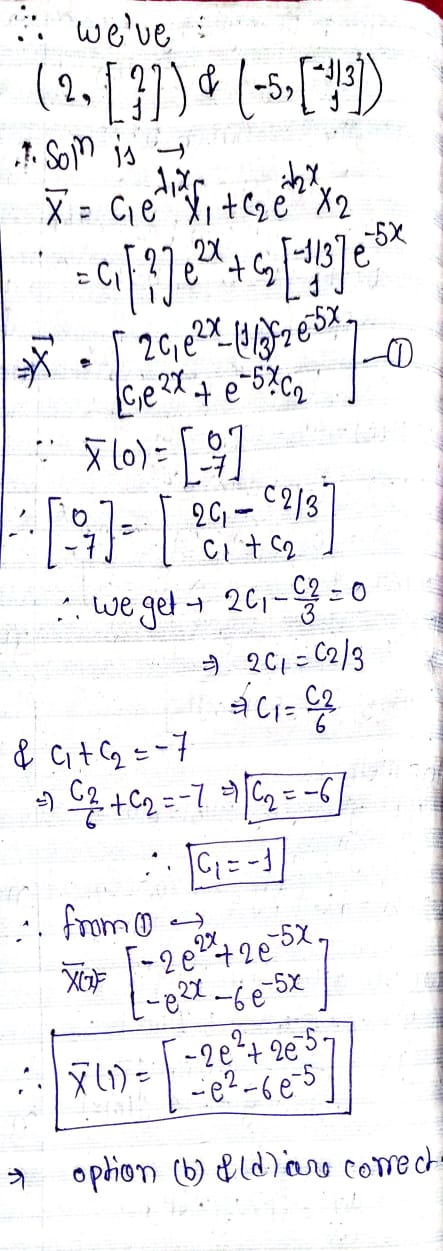 ∵ we've :
(2, [2 1]) & (-5, [-1/3 1])
∴ Solⁿ is →
X̄ = C₁e^{λ₁x} X₁ + C₂e^{λ₂x} X₂
= C₁ [2 1] e^{2x} + C₂ [-1/3 1] e^{-5x}
⇒ X̄ = [2C₁e^{2x} - (1/3)C₂e^{-5x}
C₁e^{2x} + e^{-5x}C₂] —①
∵ X̄(0) = [0 -7]
∴ [0 -7] = [2C₁ - C2/3
C₁ + C₂]
∴ we get → 2C₁ - C2/3 = 0
⇒ 2C₁ = C2/3
⇒ C₁ = C2/6
& C₁ + C₂ = -7
⇒ C2/6 + C₂ = -7 ⇒ C₂ = -6
∴ C₁ = -1
∴ from ① →
X̄(x) = [-2e^{2x} + 2e^{-5x}
-e^{2x} - 6e^{-5x}]
∴ X̄(1) = [-2e² + 2e^{-5}
-e² - 6e^{-5}]
⇒ option (b) & (d) are correct.